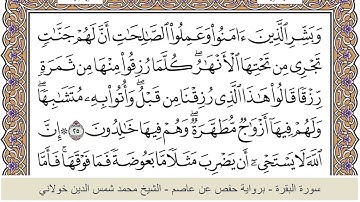 وَبَشِّرِ ٱلَّذِينَ ءَامَنُوا۟ وَعَمِلُوا۟ ٱلصَّٰلِحَٰتِ أَنَّ لَهُمْ جَنَّٰتٍ
تَجْرِى مِن تَحْتِهَا ٱلْأَنْهَٰرُ ۖ كُلَّمَا رُزِقُوا۟ مِنْهَا مِن ثَمَرَةٍ
رِّزْقًا قَالُوا۟ هَٰذَا ٱلَّذِى رُزِقْنَا مِن قَبْلُ ۖ وَأُتُوا۟ بِهِۦ مُتَشَٰبِهًا ۖ
وَلَهُمْ فِيهَآ أَزْوَٰجٌ مُّطَهَّرَةٌ ۖ وَهُمْ فِيهَا خَٰلِدُونَ ٢٥ ۞ إِنَّ
ٱللَّهَ لَا يَسْتَحْىِۦٓ أَن يَضْرِبَ مَثَلًا مَّا بَعُوضَةً فَمَا فَوْقَهَا ۚ فَأَمَّا
سورة البقرة - برواية حفص عن عاصم - الشيخ محمد شمس الدين خولاني